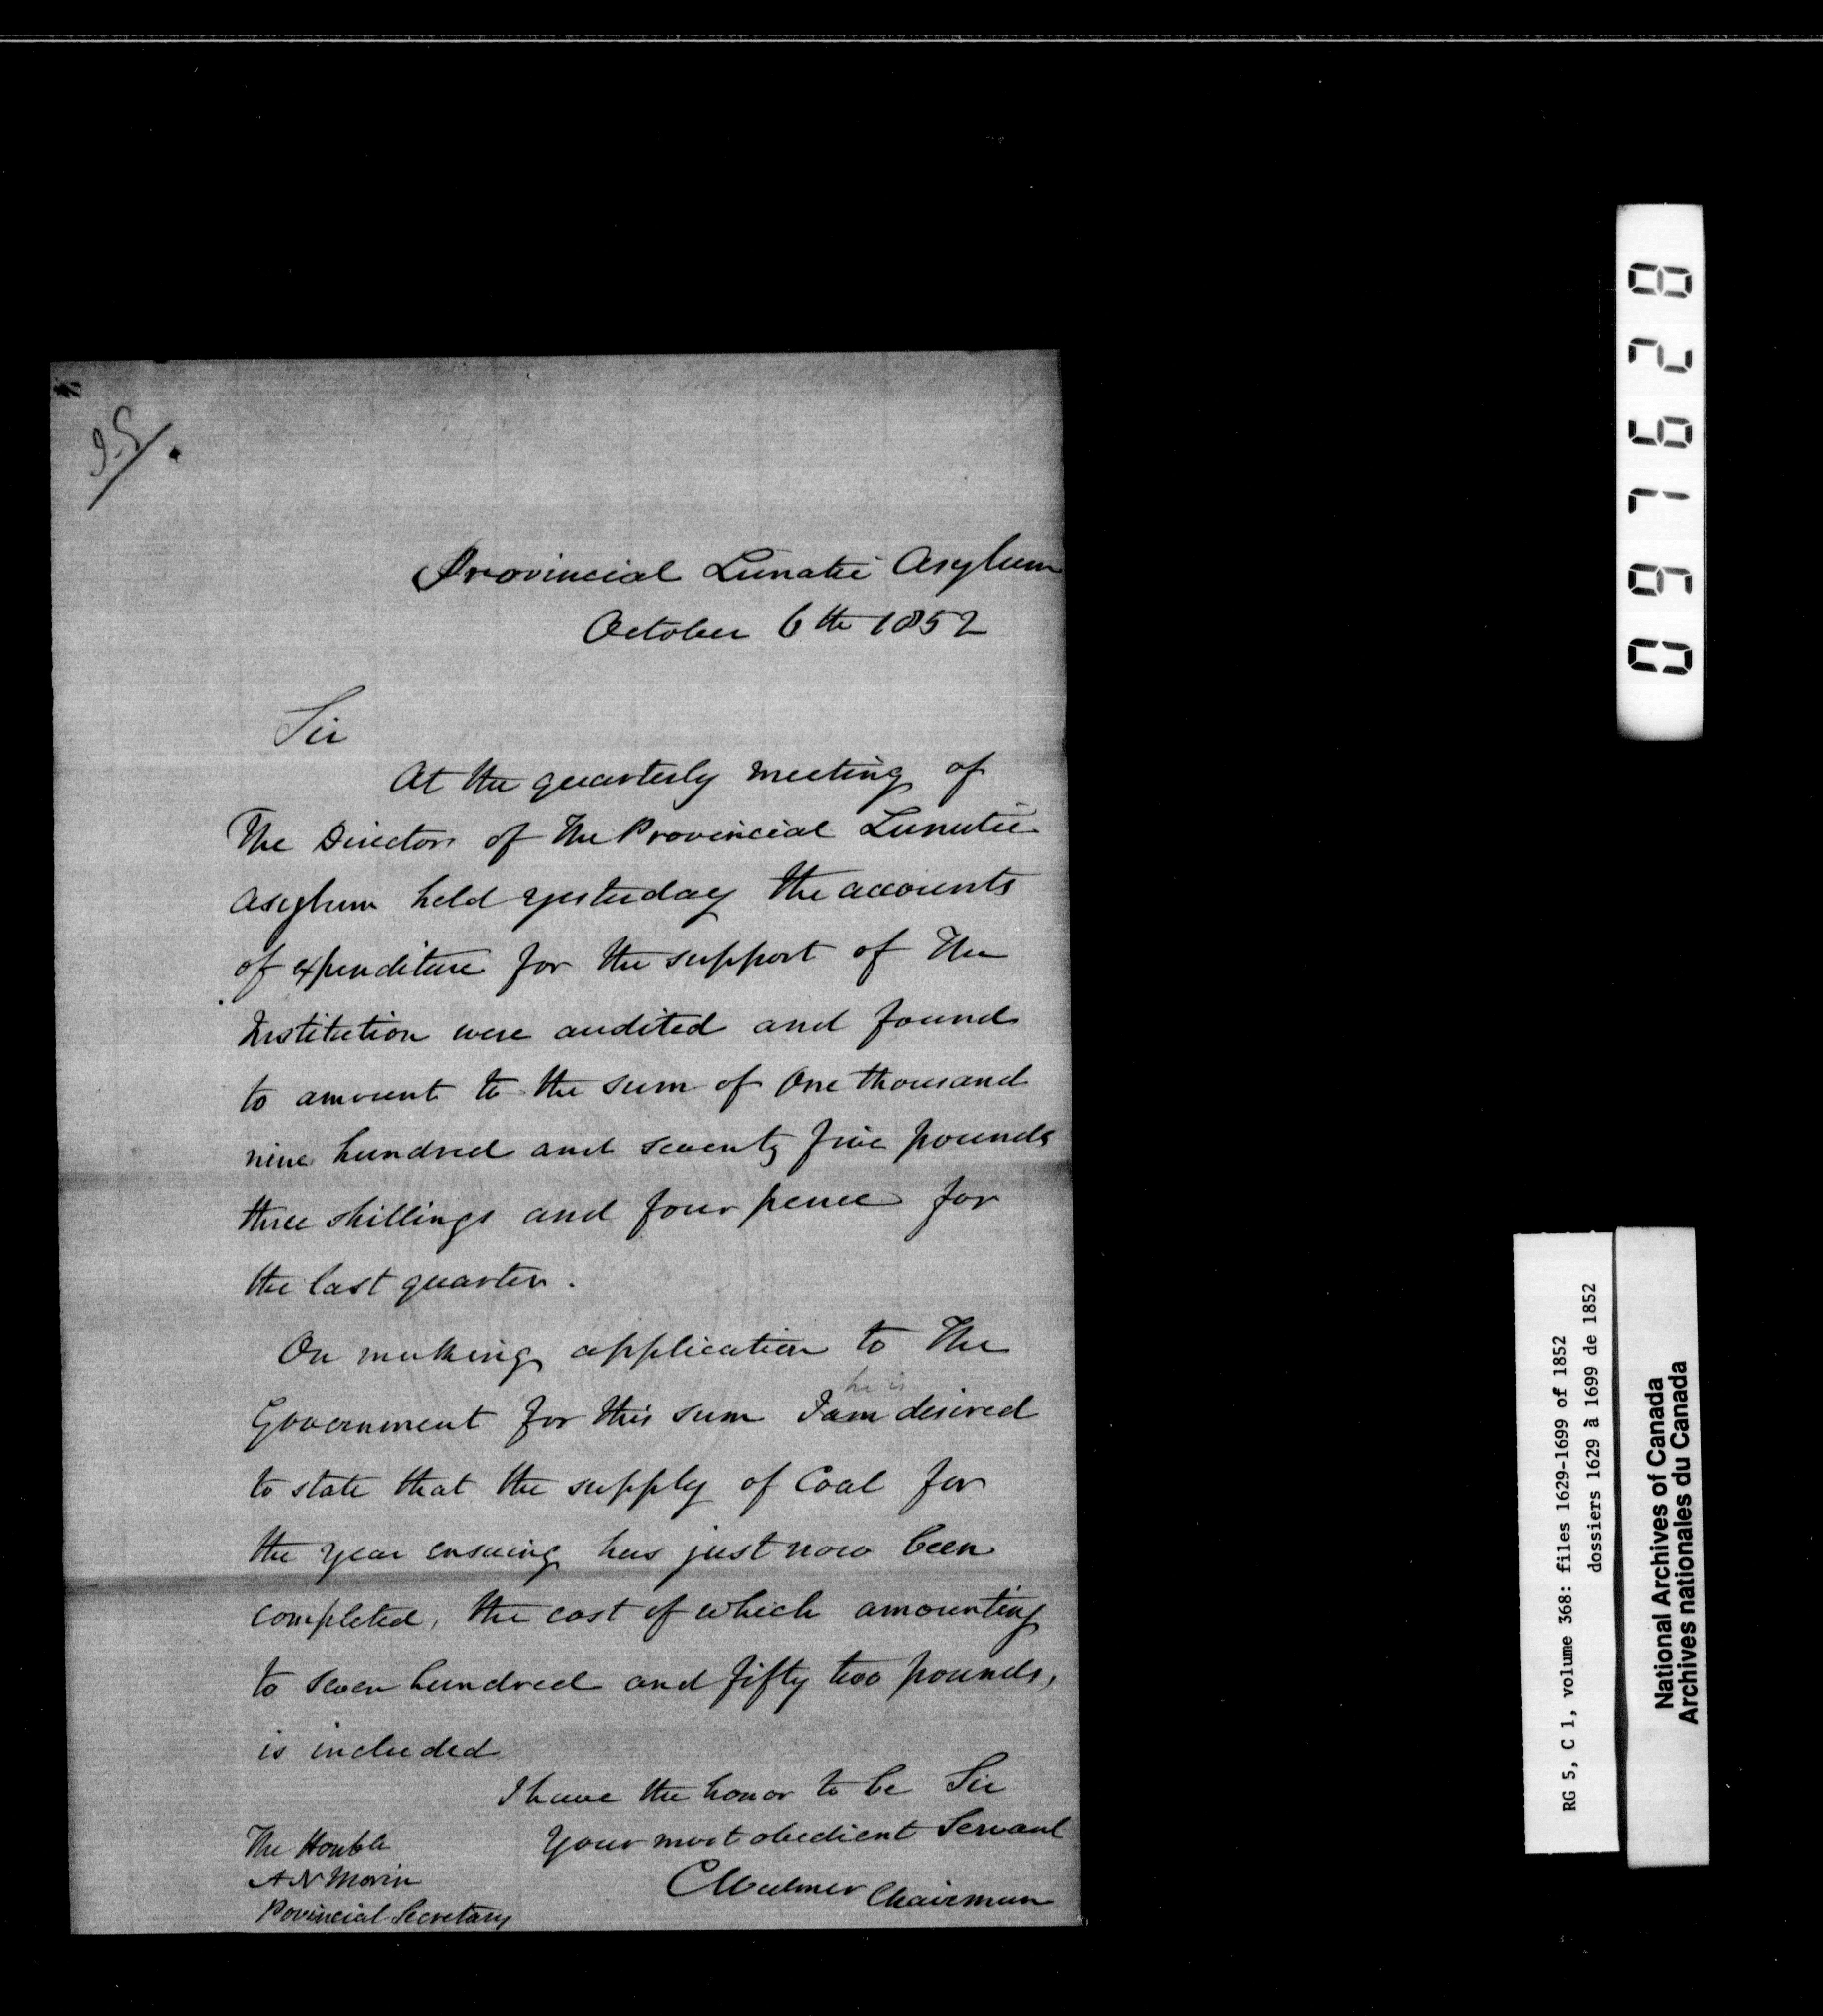 95/.
Provincial Lunatic Asylum
October 6th 1852
Sir
At the quarterly meeting of
The Directors of the Provincial Lunatic
Asylum held yesterday the accounts
of expenditure for the support of The
Institution were audited and found
to amount to the sum of One thousand
nine hundred and seventy five pounds
three shillings and four pence for
the last quarter.
On making application to The
he is
Government for this sum I am desired
to state that the supply of Coal for
the year ensuing has just now been
completed, the cost of which amounting
to seven hundred and fifty two pounds,
is included
I have the honor to be Sir
Your most obedient Servant
Chairman
The Honble
A N Morin
Provincial Secretary
097628
RG 5, C 1, volume 368: files 1629-1699 of 1852
dossiers 1629 à 1699 de 1852
National Archives of Canada
Archives nationales du Canada